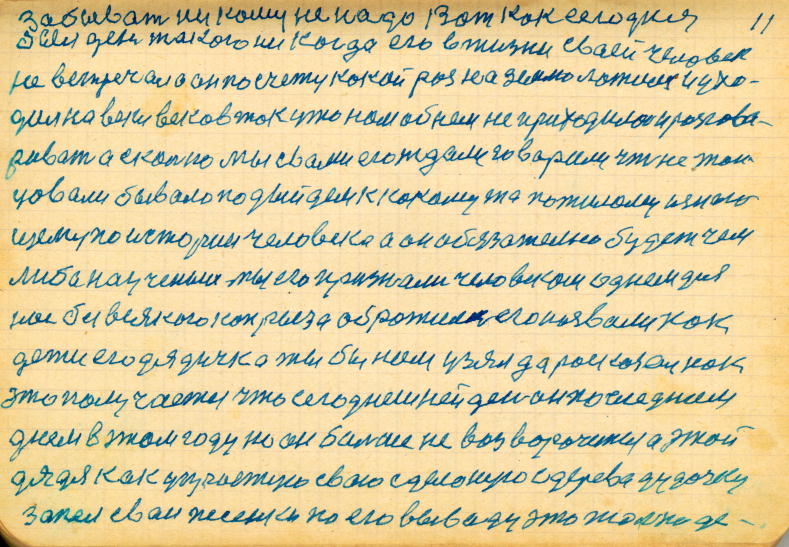 забыват никому не надо Вот как сегодня 11
Всей день такого никогда его в жизни своей человек
не встречал а он по счету какой раз на землю ложился и ухо-
дил на веки веков так ужо нам об нем не приходилос разгова-
риват а сколко мы с вами его ждали говорили что не
цовали бывало подыйдем к какому та пожилому
щему по истории человека а он обязательно будет чем
либо научены мы его признали человеком одним для
нас без всякого каприза ображились его назвали как
дети его дядичка ты бы нам узял да росказал как
это получается что сегоднешней ден он последнем
днем в этом году но он болше не возворочится а этой
дядя как ту свою сделоную с дерева дудочку
запел сваи песенки по его вываду это